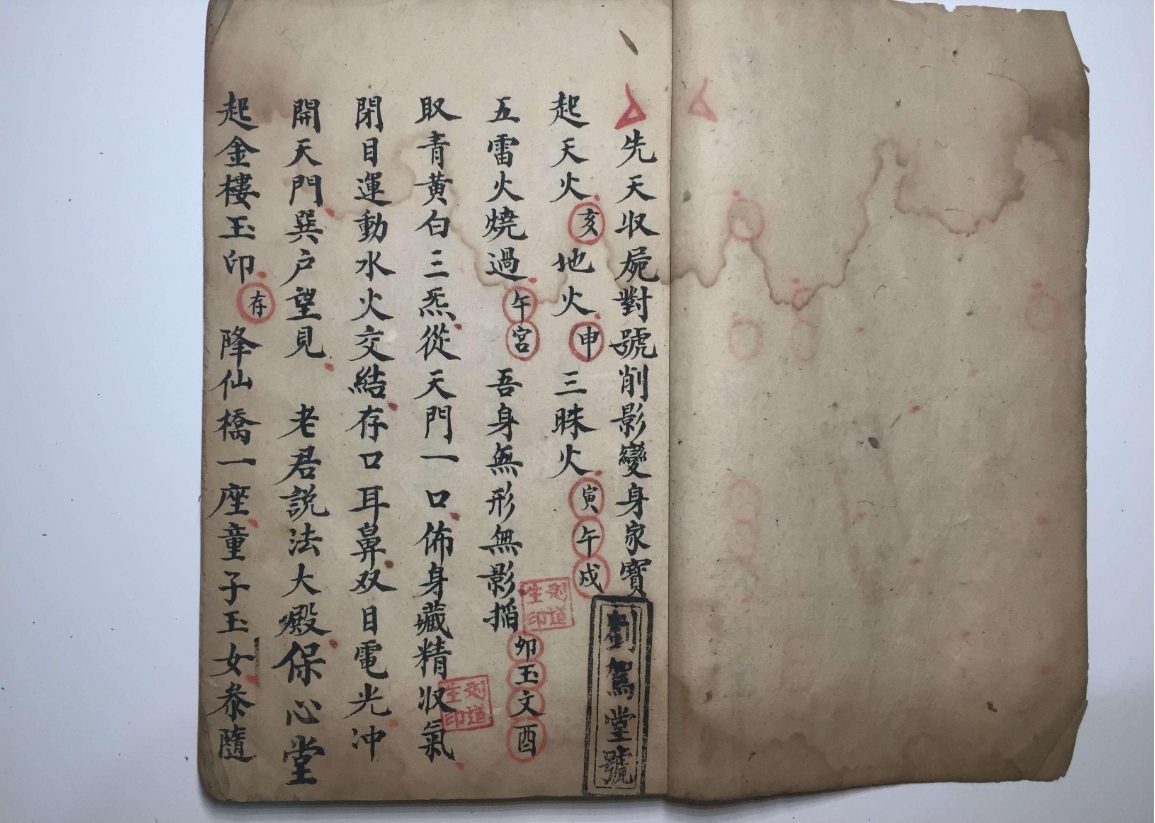 先天収屍對號削影變身家寶
劉篤堂號
起天火亥地火申三昧火寅午戍
五雷火燒過午宮吾身無形無影搯卯玉文酉
取青黄白三炁從天門一口佈身藏精収氣
閉目運動水火交結存口耳鼻双目電光冲
開天門巽户望見老君説法大殿保心堂
起金樓玉印存降仙橋一座童子玉女叅隨